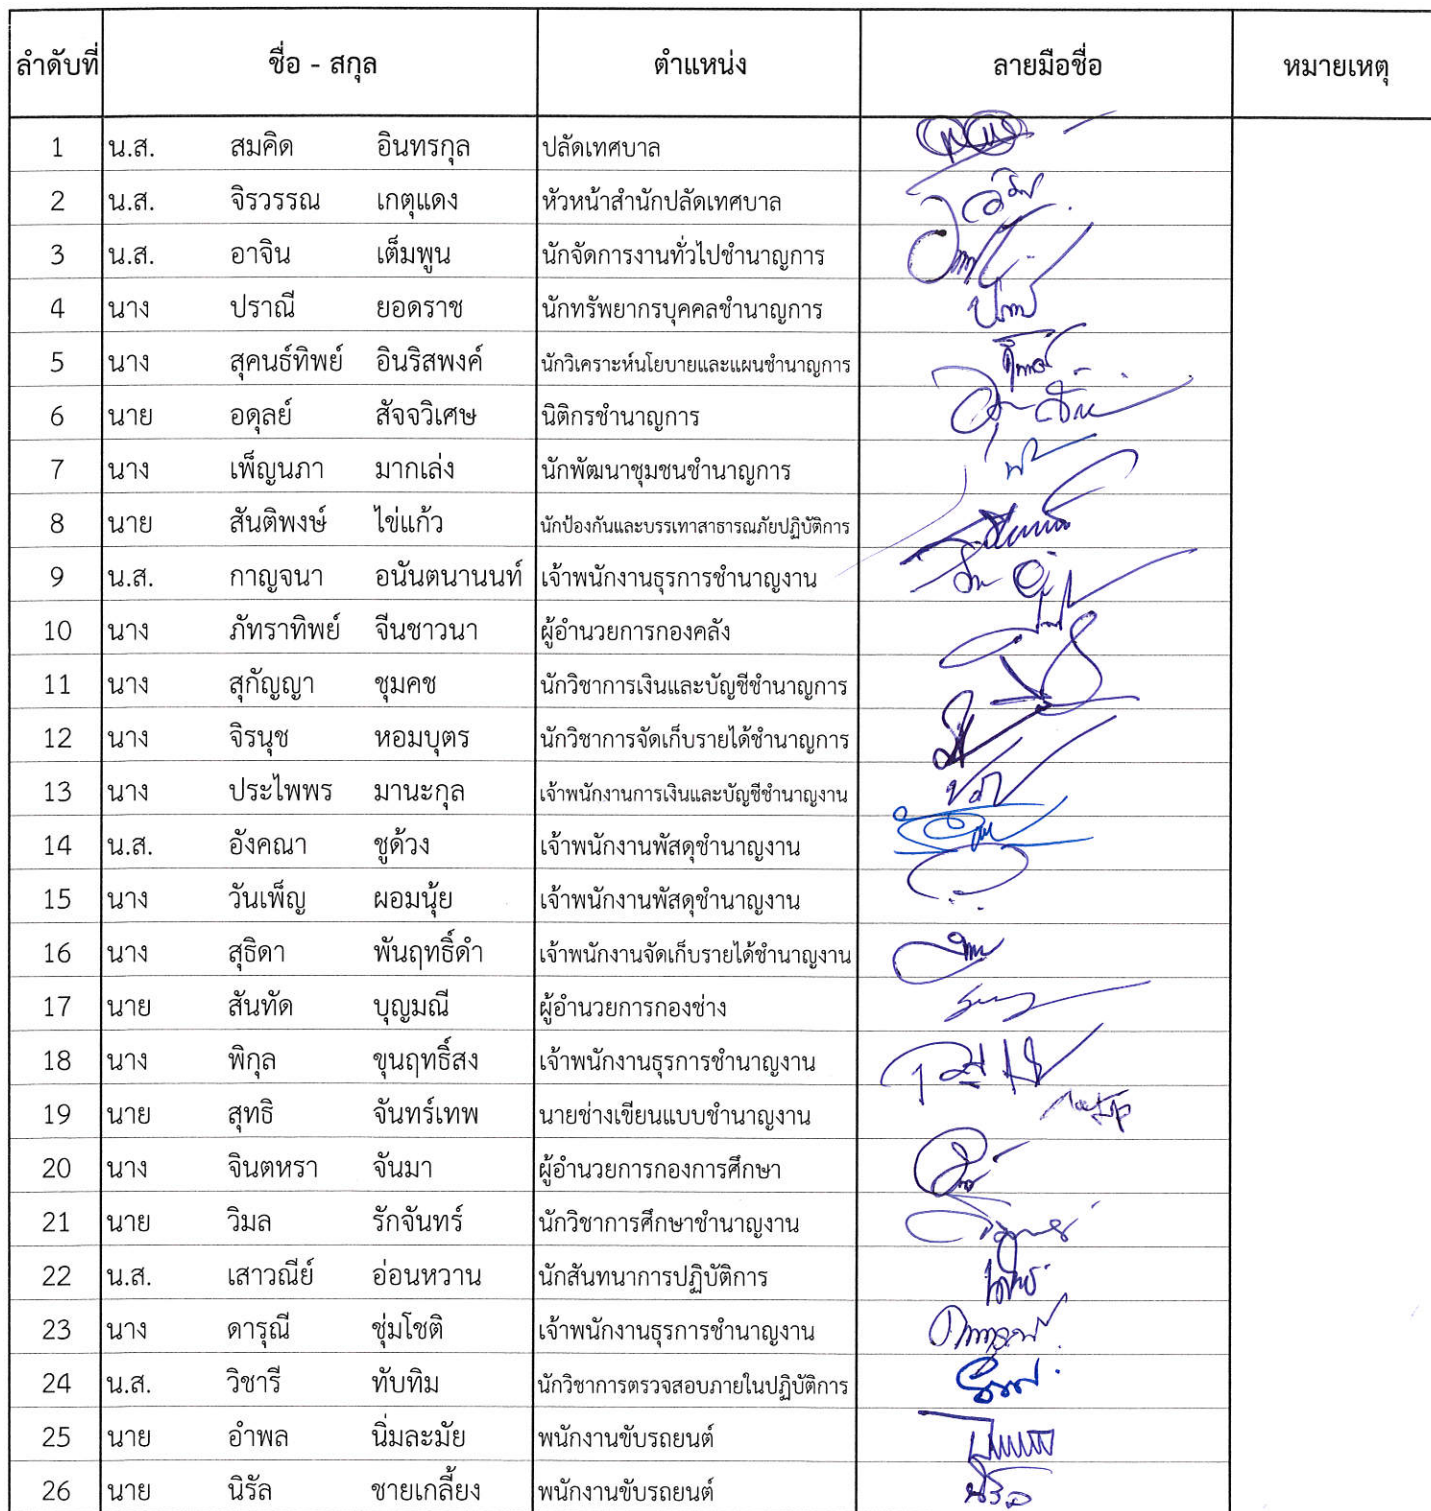 ลำดับที่ ชื่อ - สกุล ตำแหน่ง ลายมือชื่อ หมายเหตุ
1 น.ส. สมคิด อินทรกุล ปลัดเทศบาล
2 น.ส. จิรวรรณ เกตุแดง หัวหน้าสำนักปลัดเทศบาล
3 น.ส. อาจิน เต็มพูน นักจัดการงานทั่วไปชำนาญการ
4 นาง ปราณี ยอดราช นักทรัพยากรบุคคลชำนาญการ
5 นาง สุคนธ์ทิพย์ อินริสพงค์ นักวิเคราะห์นโยบายและแผนชำนาญการ
6 นาย อดุลย์ สัจจวิเศษ นิติกรชำนาญการ
7 นาง เพ็ญนภา มากเล่ง นักพัฒนาชุมชนชำนาญการ
8 นาย สันติพงษ์ ไข่แก้ว นักป้องกันและบรรเทาสาธารณภัยปฏิบัติการ
9 น.ส. กาญจนา อนันตนานนท์ เจ้าพนักงานธุรการชำนาญงาน
10 นาง ภัทราทิพย์ จีนชาวนา ผู้อำนวยการกองคลัง
11 นาง สุกัญญา ชุมคช นักวิชาการเงินและบัญชีชำนาญการ
12 นาง จิรนุช หอมบุตร นักวิชาการจัดเก็บรายได้ชำนาญการ
13 นาง ประไพพร มานะกุล เจ้าพนักงานการเงินและบัญชีชำนาญงาน
14 น.ส. อังคณา ชูด้วง เจ้าพนักงานพัสดุชำนาญงาน
15 นาง วันเพ็ญ ผอมนุ้ย เจ้าพนักงานพัสดุชำนาญงาน
16 นาง สุธิดา พันฤทธิ์ดำ เจ้าพนักงานจัดเก็บรายได้ชำนาญงาน
17 นาย สันทัด บุญมณี ผู้อำนวยการกองช่าง
18 นาง พิกุล ขุนฤทธิ์สง เจ้าพนักงานธุรการชำนาญงาน
19 นาย สุทธิ จันทร์เทพ นายช่างเขียนแบบชำนาญงาน
20 นาง จินตหรา จันมา ผู้อำนวยการกองการศึกษา
21 นาย วิมล รักจันทร์ นักวิชาการศึกษาชำนาญงาน
22 น.ส. เสาวณีย์ อ่อนหวาน นักสันทนาการปฏิบัติการ
23 นาง ดารุณี ชุ่มโชติ เจ้าพนักงานธุรการชำนาญงาน
24 น.ส. วิชารี ทับทิม นักวิชาการตรวจสอบภายในปฏิบัติการ
25 นาย อำพล นิ่มละมัย พนักงานขับรถยนต์
26 นาย นิรัล ชายเกลี้ยง พนักงานขับรถยนต์